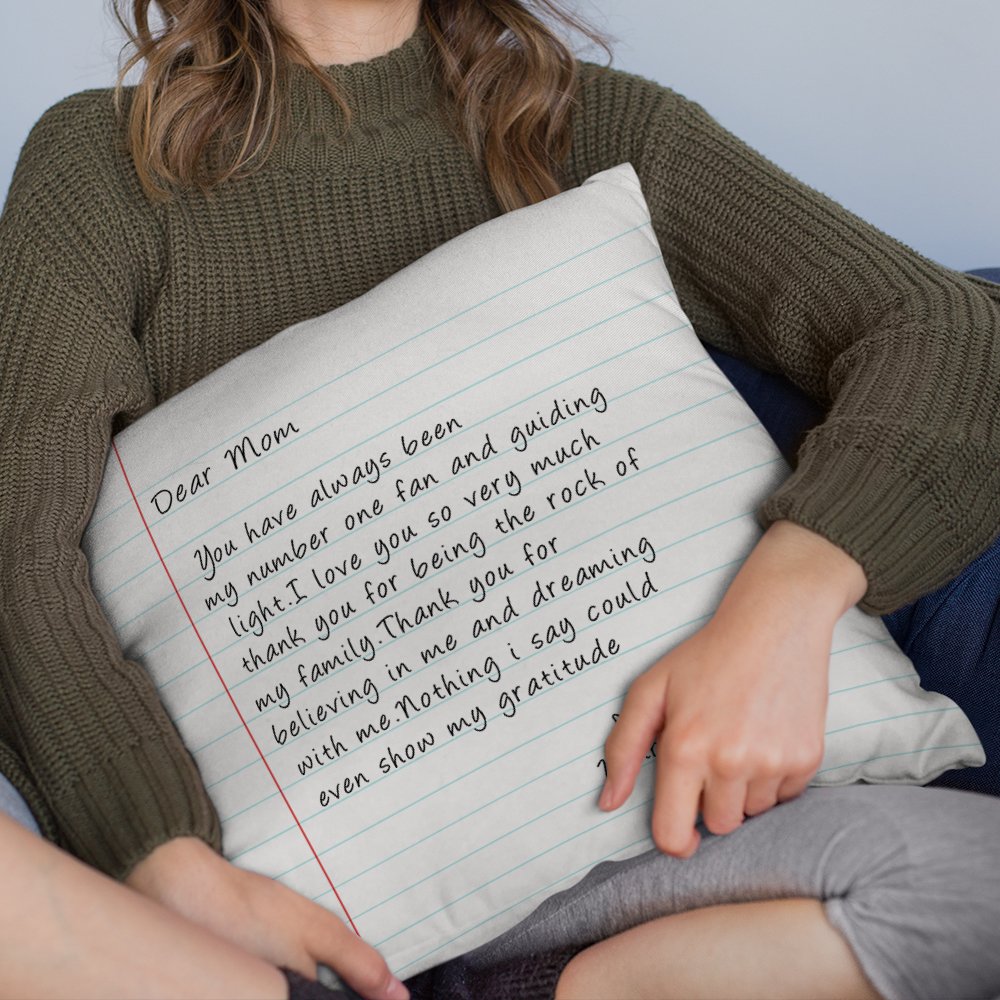 Dear Mom
You have always been
my number one fan and guiding
light.I love you so very much
thank you for being the rock of
my family.Thank you for
believing in me and dreaming
with me.Nothing i say could
even show my gratitude